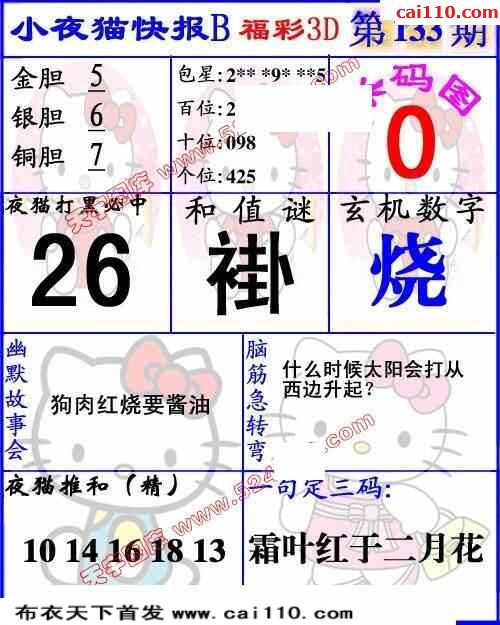 cai110.com
小夜猫快报B 福彩3D 第 133 期
金胆 5
银胆 6
铜胆 7
包星: 2** *9* **5
百位: 2
十位: 098
个位: 425
码图
0
夜猫打黑必中
26
和值谜
褂
玄机数字
烧
幽默故事会
狗肉红烧要酱油
脑筋急转弯
什么时候太阳会打从
西边升起?
夜猫推和(精)
10 14 16 18 13
一句定三码:
霜叶红于二月花
天字图库
天字图库
布衣天下首发 www.cai110.com